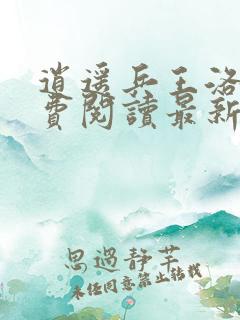 逍遥兵王洛
費閱讀最新
思過靜芊
未经同意禁止转载